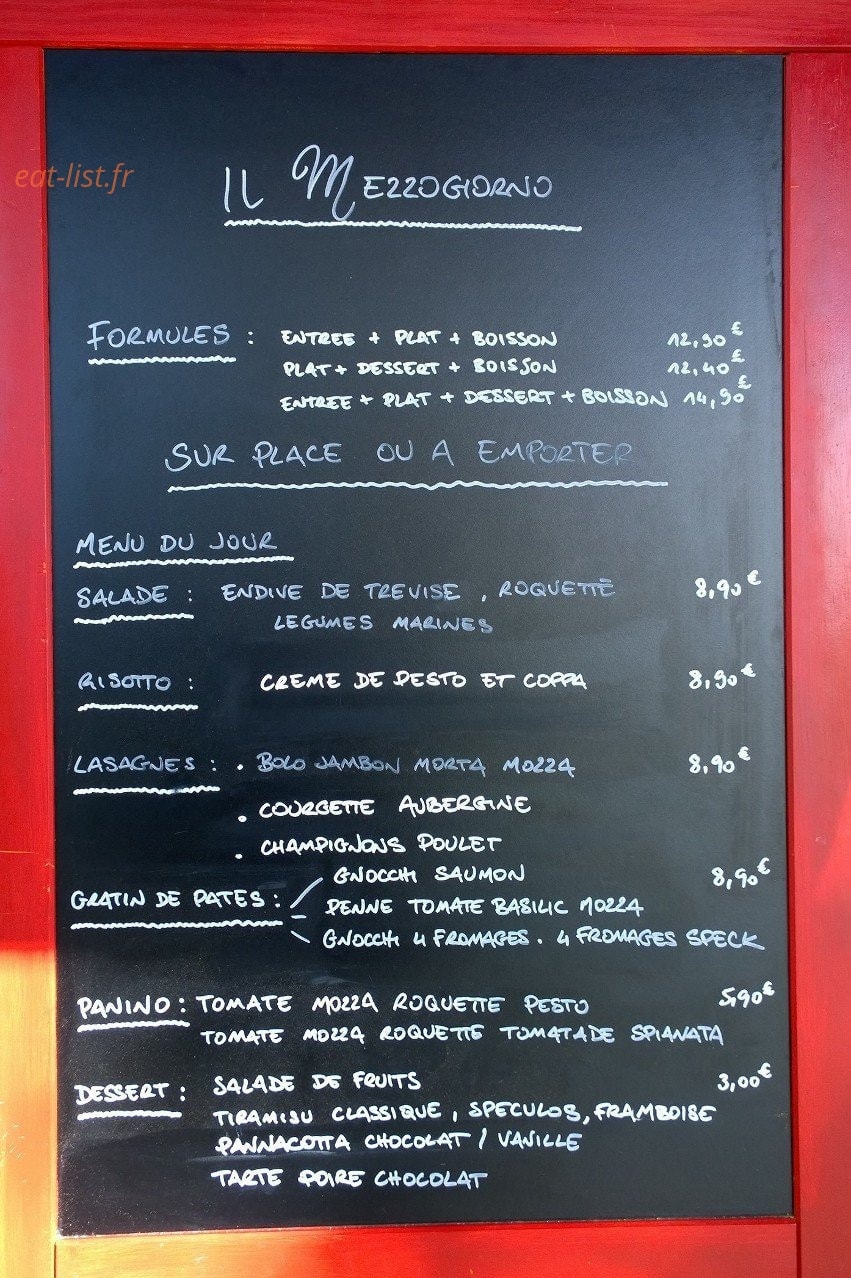 eat-list.fr
IL MEZZOGIORNO
FORMULES : ENTREE + PLAT + BOISSON 12,90€
PLAT + DESSERT + BOISSON 12,40€
ENTREE + PLAT + DESSERT + BOISSON 14,90€
SUR PLACE OU A EMPORTER
MENU DU JOUR
SALADE : ENDIVE DE TREVISE , ROQUETTE 8,90€
LEGUMES MARINES
RISOTTO : CREME DE PESTO ET COPPA 8,90€
LASAGNES : • BOLO JAMBON MORTA MOZZA 8,90€
• COURGETTE AUBERGINE
• CHAMPIGNONS POULET
GNOCCHI SAUMON 8,90€
GRATIN DE PATES : PENNE TOMATE BASILIC MOZZA
GNOCCHI 4 FROMAGES . 4 FROMAGES SPECK
PANINO : TOMATE MOZZA ROQUETTE PESTO 5,90€
TOMATE MOZZA ROQUETTE TOMATADE SPIANATA
DESSERT : SALADE DE FRUITS 3,00€
TIRAMISU CLASSIQUE , SPECULOS, FRAMBOISE
PANNACOTTA CHOCOLAT / VANILLE
TARTE POIRE CHOCOLAT